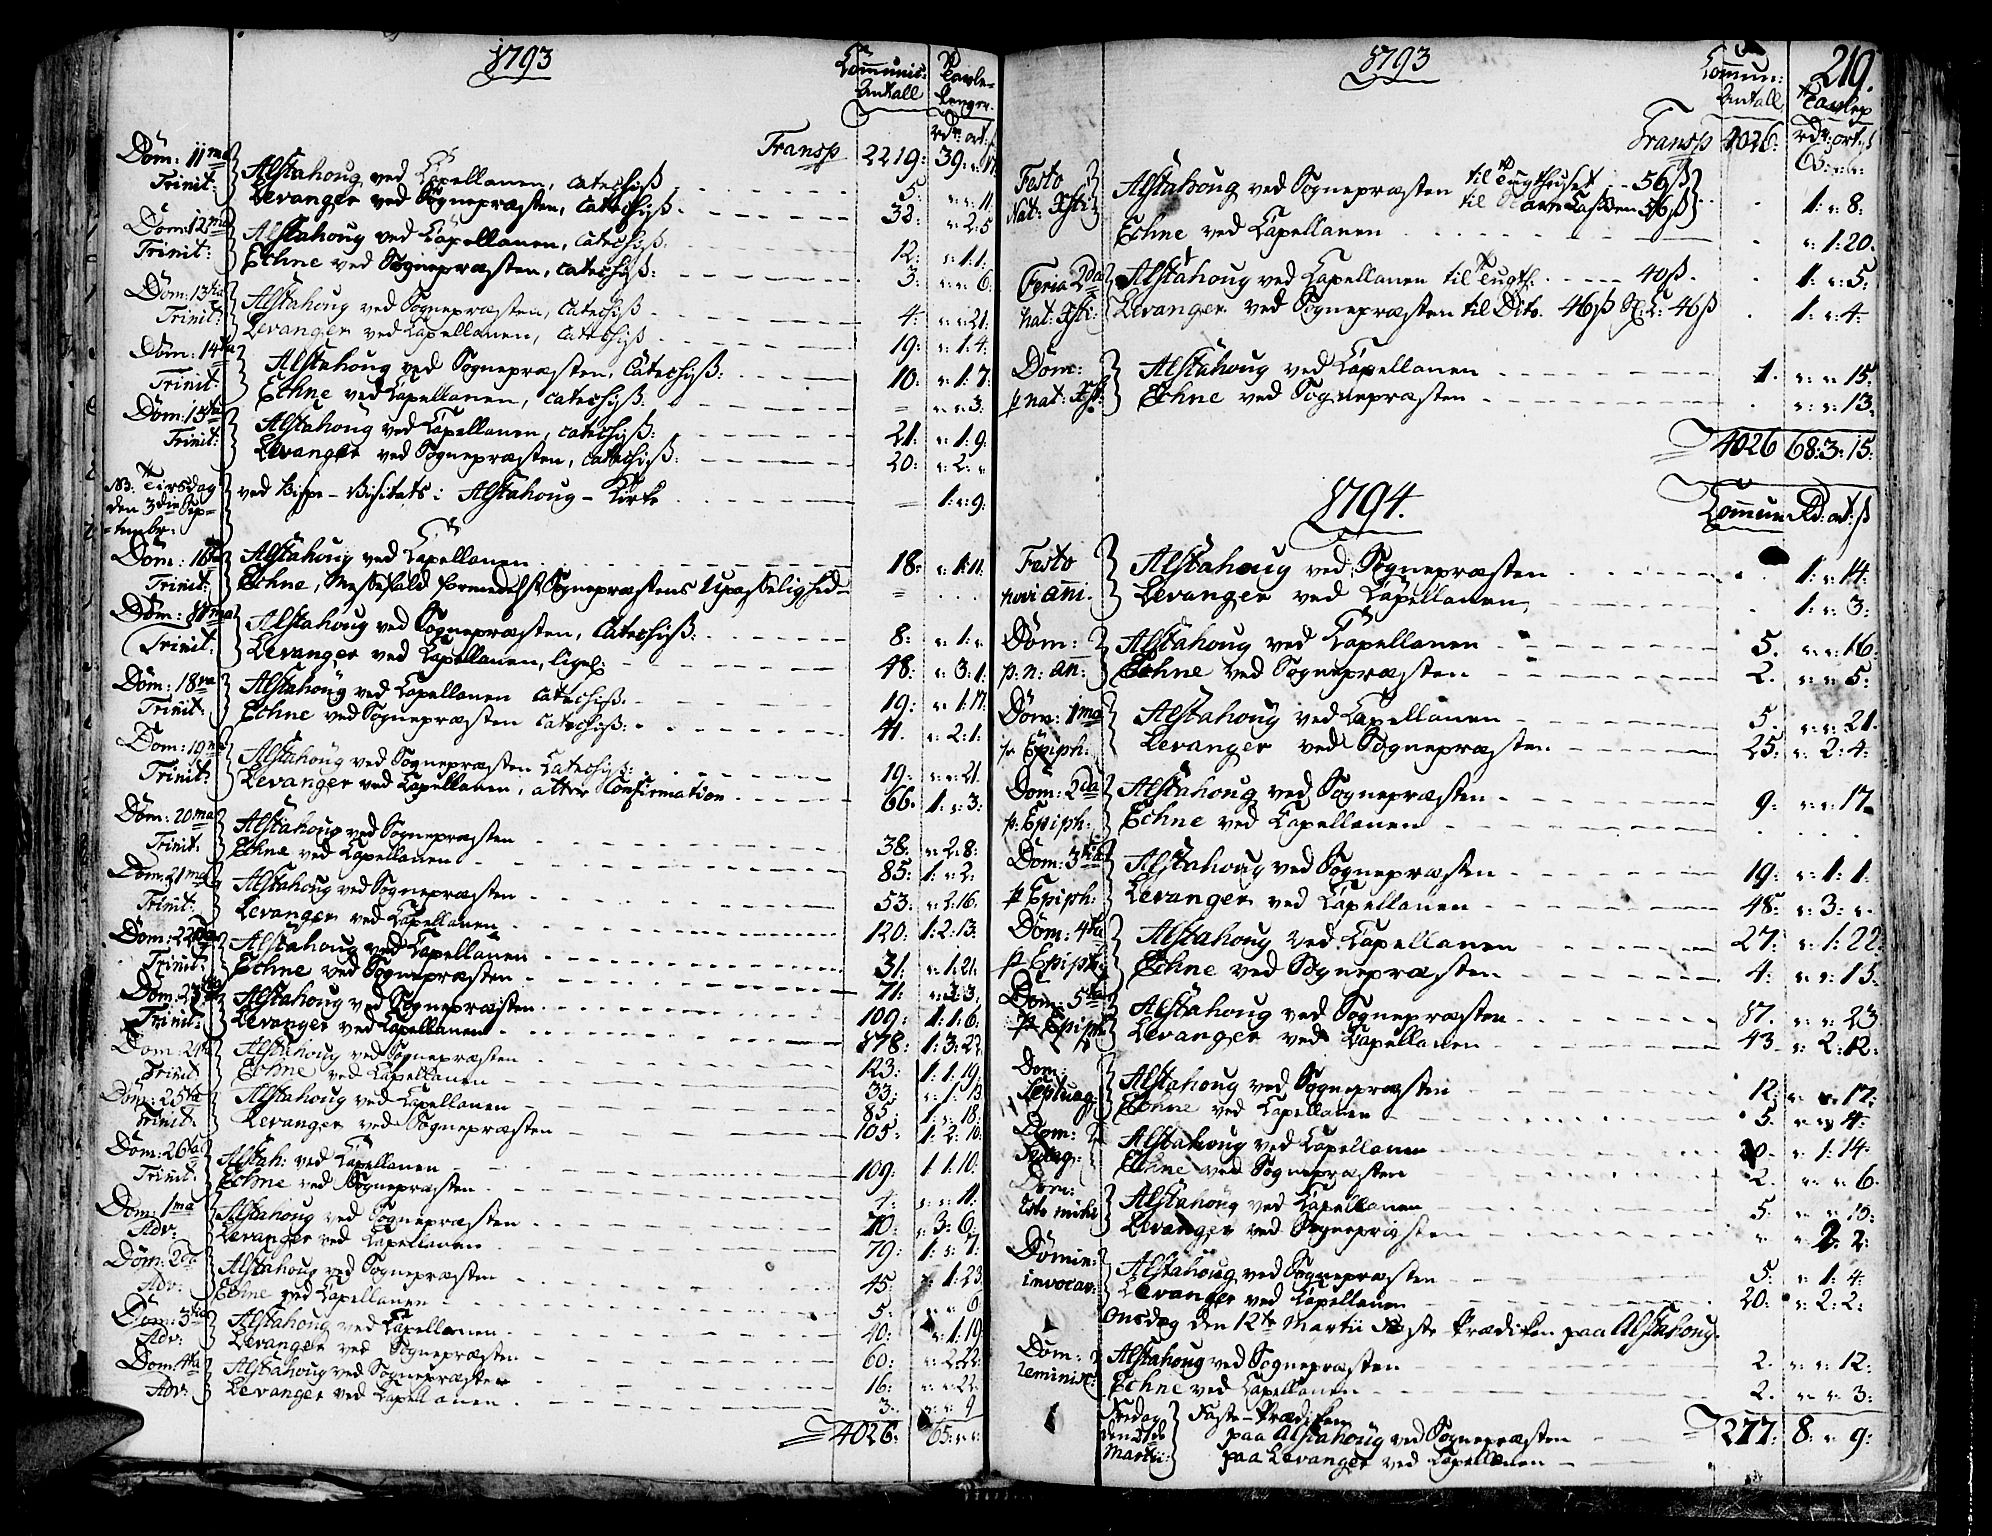 1793
Communic: Antall
Tavle-Penger
rdr: ort: ß
Transp 2219: 39: ": 17
Dom: 11ma Trinit: Alstahoug ved Capellanen, catechiß 5: ": ": 11.
Levanger ved Sognepræsten, catechiß. 32: ": 2: 5
Dom: 12ma Trinit: Alstahoug ved Capellanen, catechiß. 12: ": 1: 1:
Echne ved Sognepræsten, catechiß: 3: ": ": 6:
Dom: 13tia Trinit: Alstahoug ved Sognepræsten, catechiß 4: ": ": 21:
Levanger ved Capellanen, catechiß 19: ": 1: 4:
Dom: 14ta Trinit: Alstahoug ved Sognepræsten, Catechiß: 10: ": 1: 7:
Echne ved Capellanen, catechiß: = ": ": 3:
Dom: 15ta Trinit: Alstahoug ved Capellanen, catechiß: 21: ": 1: 9:
Levanger ved Sognepræsten, catechiß: 20: ": 2: "
NB. Tirsdag den 3die Sep-tembr: ved Bispe-Visitats i Alstahoug-Kirke = 1: ": 9:
Dom: 16ta Trinit: Alstahoug ved Capellanen 18: ": 1: 11:
Echne, Messefald formedelst Sognepræstens Upasselighed =
Dom: 17ma Trinit: Alstahoug ved Sognepræsten, Catechiß: 8: ": 1: "
Levanger ved Capellanen, ligel: 48: ": 3: 1:
Dom: 18va Trinit: Alstahoug ved Capellanen catechiß. 19: ": 1: 17:
Echne ved Sognepræsten catechiß: 41. ": 2: 1:
Dom: 19na Trinit: Alstahoug ved Sognepræsten Catechiß: 19: ": ": 21.
Levanger ved Capellanen, atter Confirmation 66: 1: ": 3:
Dom: 20ma Trinit: Alstahoug ved Sognepræsten 38: ": 2: 8:
Echne ved Capellanen 85: 1: ": 2:
Dom: 21ma Trinit: Alstahoug ved Sognepræsten 53: ": 2: 16.
Levanger ved Capellanen 120: 1: 2: 13:
Dom: 22da Trinit: Alstahoug ved Capellanen 31: ": 1: 21:
Echne ved Sognepræsten 71: ": 3: 3:
Dom: 23tia Trinit: Alstahoug ved Sognepræsten 109: 1: 1: 6:
Levanger ved Capellanen 178: 1: 3: 22.
Dom: 24ta Trinit Alstahoug ved Sognepræsten 123: 1: 1: 19:
Echne ved Capellanen 33: ": 1: 13
Dom: 25ta Trinit: Alstahoug ved Capellanen 85: 1: ": 18:
Levanger ved Sognepræsten 105: 1: 2: 10:
Dom: 26ta Trinit: Alstah: ved Capellanen 109: 1: 1: 10:
Echne ved Sognepræsten 7: ": ": 11:
Dom: 1ma Adv: Alstahoug ved Sognepræsten 70: ": 3: 6:
Levanger ved Capellanen 79: 1: ": 7:
Dom: 2da Adv: Alstahoug ved Sognepræsten 45: ": 1: 23:
Echne ved Capellanen 5: ": ": 6
Dom: 3tia Adv: Alstahoug ved Capellanen 40: ": 1: 19:
Levanger ved Sognepræsten 60: ": 2: 22:
Dom: 4ta Adv: Alstahoug ved Sognepræsten 16: ": ": 22:
Levanger ved Capellanen 3: ": ": 9
4026: 65: ": "
1793
219.
Commun: Antall
Tavlep
rdr: ort: ß
Transp 4026: 65: ": "
Festo Nat: Xsti: Alstahoug ved Sognepræsten til Tugthuset 56ß
1: ": 8:
Echne ved Capellanen ": 1: 20.
Feria 2da nat: Xsti: Alstahoug ved Capellanen til Tugth: 40ß 1: ": 5:
Levanger ved Sognepræsten til Dito 46ß 46ß 1: ": 4:
Dom: p nat: Xsti: Alstahoug ved Capellanen 1. ": ": 15:
Echne ved Sognepræsten ": ": 13:
4026 68: 3: 15:
1794.
Commun Rd: ort: ß
Festo novi anni. Alstahoug ved Sognepræsten 1: ": 14:
Levanger ved Capellanen 1: ": 3:
Dom: p: n: an: Alstahoug ved Capellanen 5. ": ": 16:
Echne ved Sognepræsten 2. ": ": 5:
Dom: 1ma p: Epiph: Alstahoug ved Capellanen 5. ": ": 21.
Levanger ved Sognepræsten 25: ": 2: 4:
Dom: 2da p: Epiph: Alstahoug ved Sognepræsten 9: ": ": 17.
Echne ved Capellanen
Dom: 3tia p Epiph: Alstahoug ved Sognepræsten 19: ": 1: 1:
Levanger ved Capellanen 48: ": 3: "
Dom: 4ta p Epiph: Alstahoug ved Capellanen 27: ": 1: 22:
Echne ved Sognepræsten 4: ": ": 15:
Dom: 5ta p Epiph: Alstahoug ved Sognepræsten 87. ": ": 23
Levanger ved Capellanen 43. ": 2: 12:
Dom: Septuag: Alstahoug ved Sognepræsten 12: ": ": 17:
Echne ved Capellanen 5. ": ": 4:
Dom: Sexag: Alstahoug ved Capellanen ": 1: 14:
Echne ved Sognepræsten 2. ": ": 6.
Dom: Esto mihi Alstahoug ved Capellanen 5. ": ": 15:
Levanger ved Sognepræsten " ": 2: 2:
Domin: invocav: Alstahoug ved Sognepræsten 5: ": 1: 4:
Levanger ved Capellanen 20: ": 2: 2:
Onsdag den 12te Martii Faste Prædiken paa Alstahoug.
Dom: reminisc: Alstahoug ved Sognepræsten 2. ": ": 12:
Echne ved Capellanen 2. ": ": 3:
Fredag den 21de Martii: Faste-Prædiken
paa Alstahoug ved Sognepræsten
paa Levanger ved Capellanen
277: 8: ": 9: